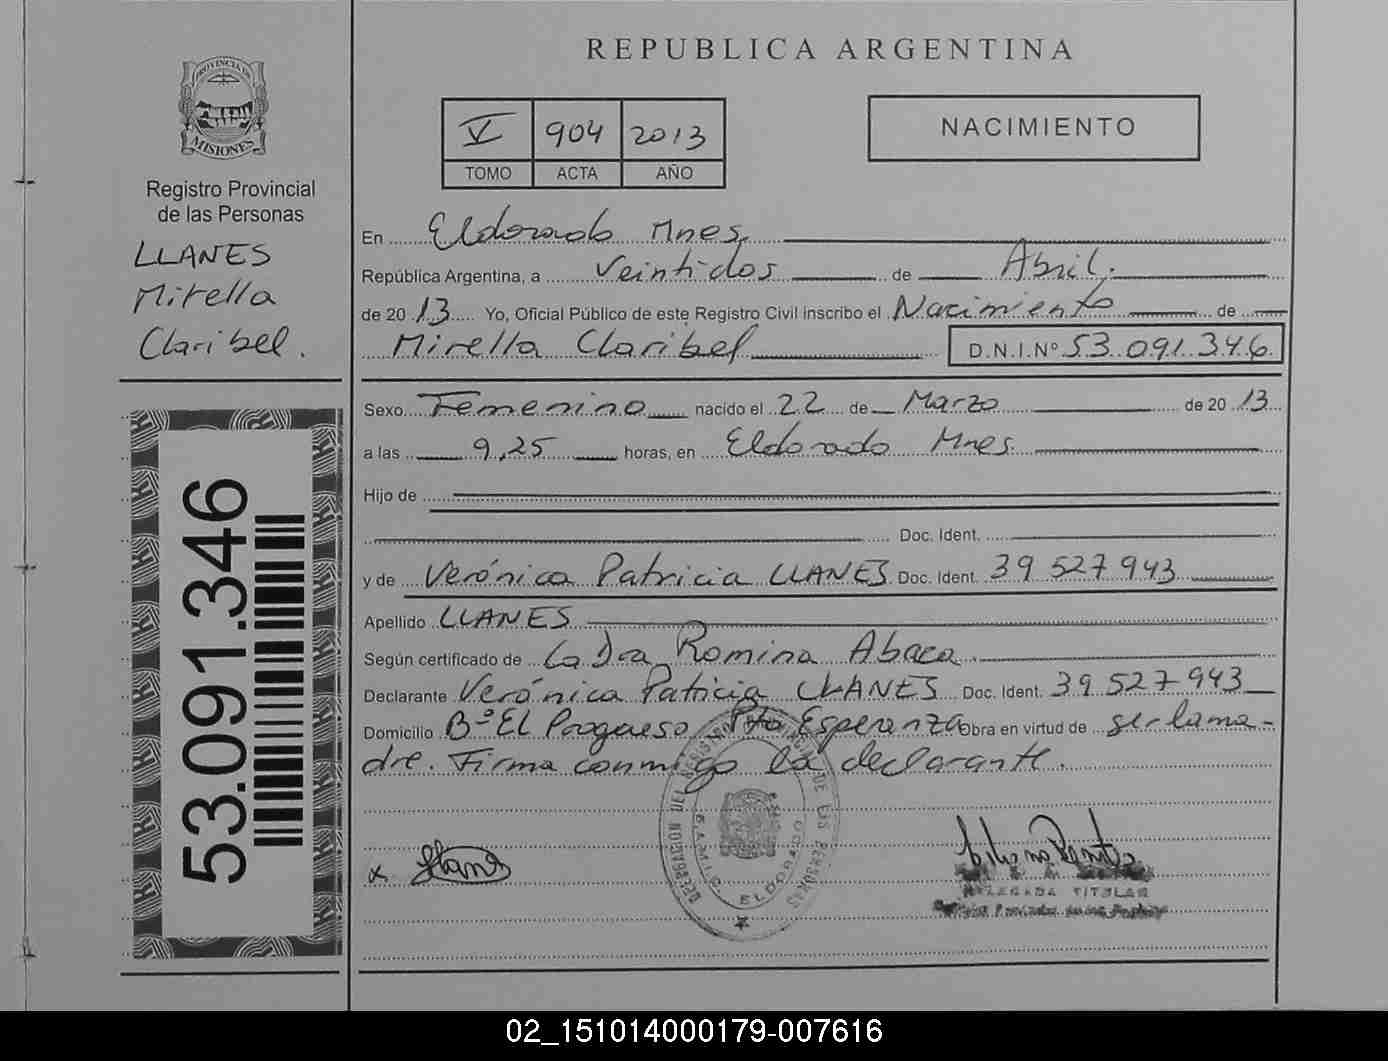 REPUBLICA ARGENTINA
PROVINCIA DE
MISIONES
Registro Provincial
de las Personas
LLANES
Mirella
Claribel.
53.091.346
V 904 2013
TOMO ACTA AÑO
NACIMIENTO
En Eldorado Mnes.
República Argentina, a Veintidos de Abril.
de 2013 Yo, Oficial Público de este Registro Civil inscribo el Nacimiento de
Mirella Claribel D.N.I.Nº 53.091.346
Sexo Femenino nacido el 22 de Marzo de 2013
a las 9,25 horas, en Eldorado Mnes.
Hijo de
Doc. Ident.
y de Verónica Patricia LLANES Doc. Ident. 39 527 943
Apellido LLANES
Según certificado de La Dra Romina Abaca
Declarante Verónica Patricia LLANES Doc. Ident. 39 527 943
Domicilio Bº El Progreso Pto Esperanza Obra en virtud de ser la ma-
dre. Firma conmigo la declarante.
DELEGACION DEL REGISTRO PROVINCIAL DE LAS PERSONAS
ELDORADO
x Llanes
DELEGADA TITULAR
02_151014000179-007616